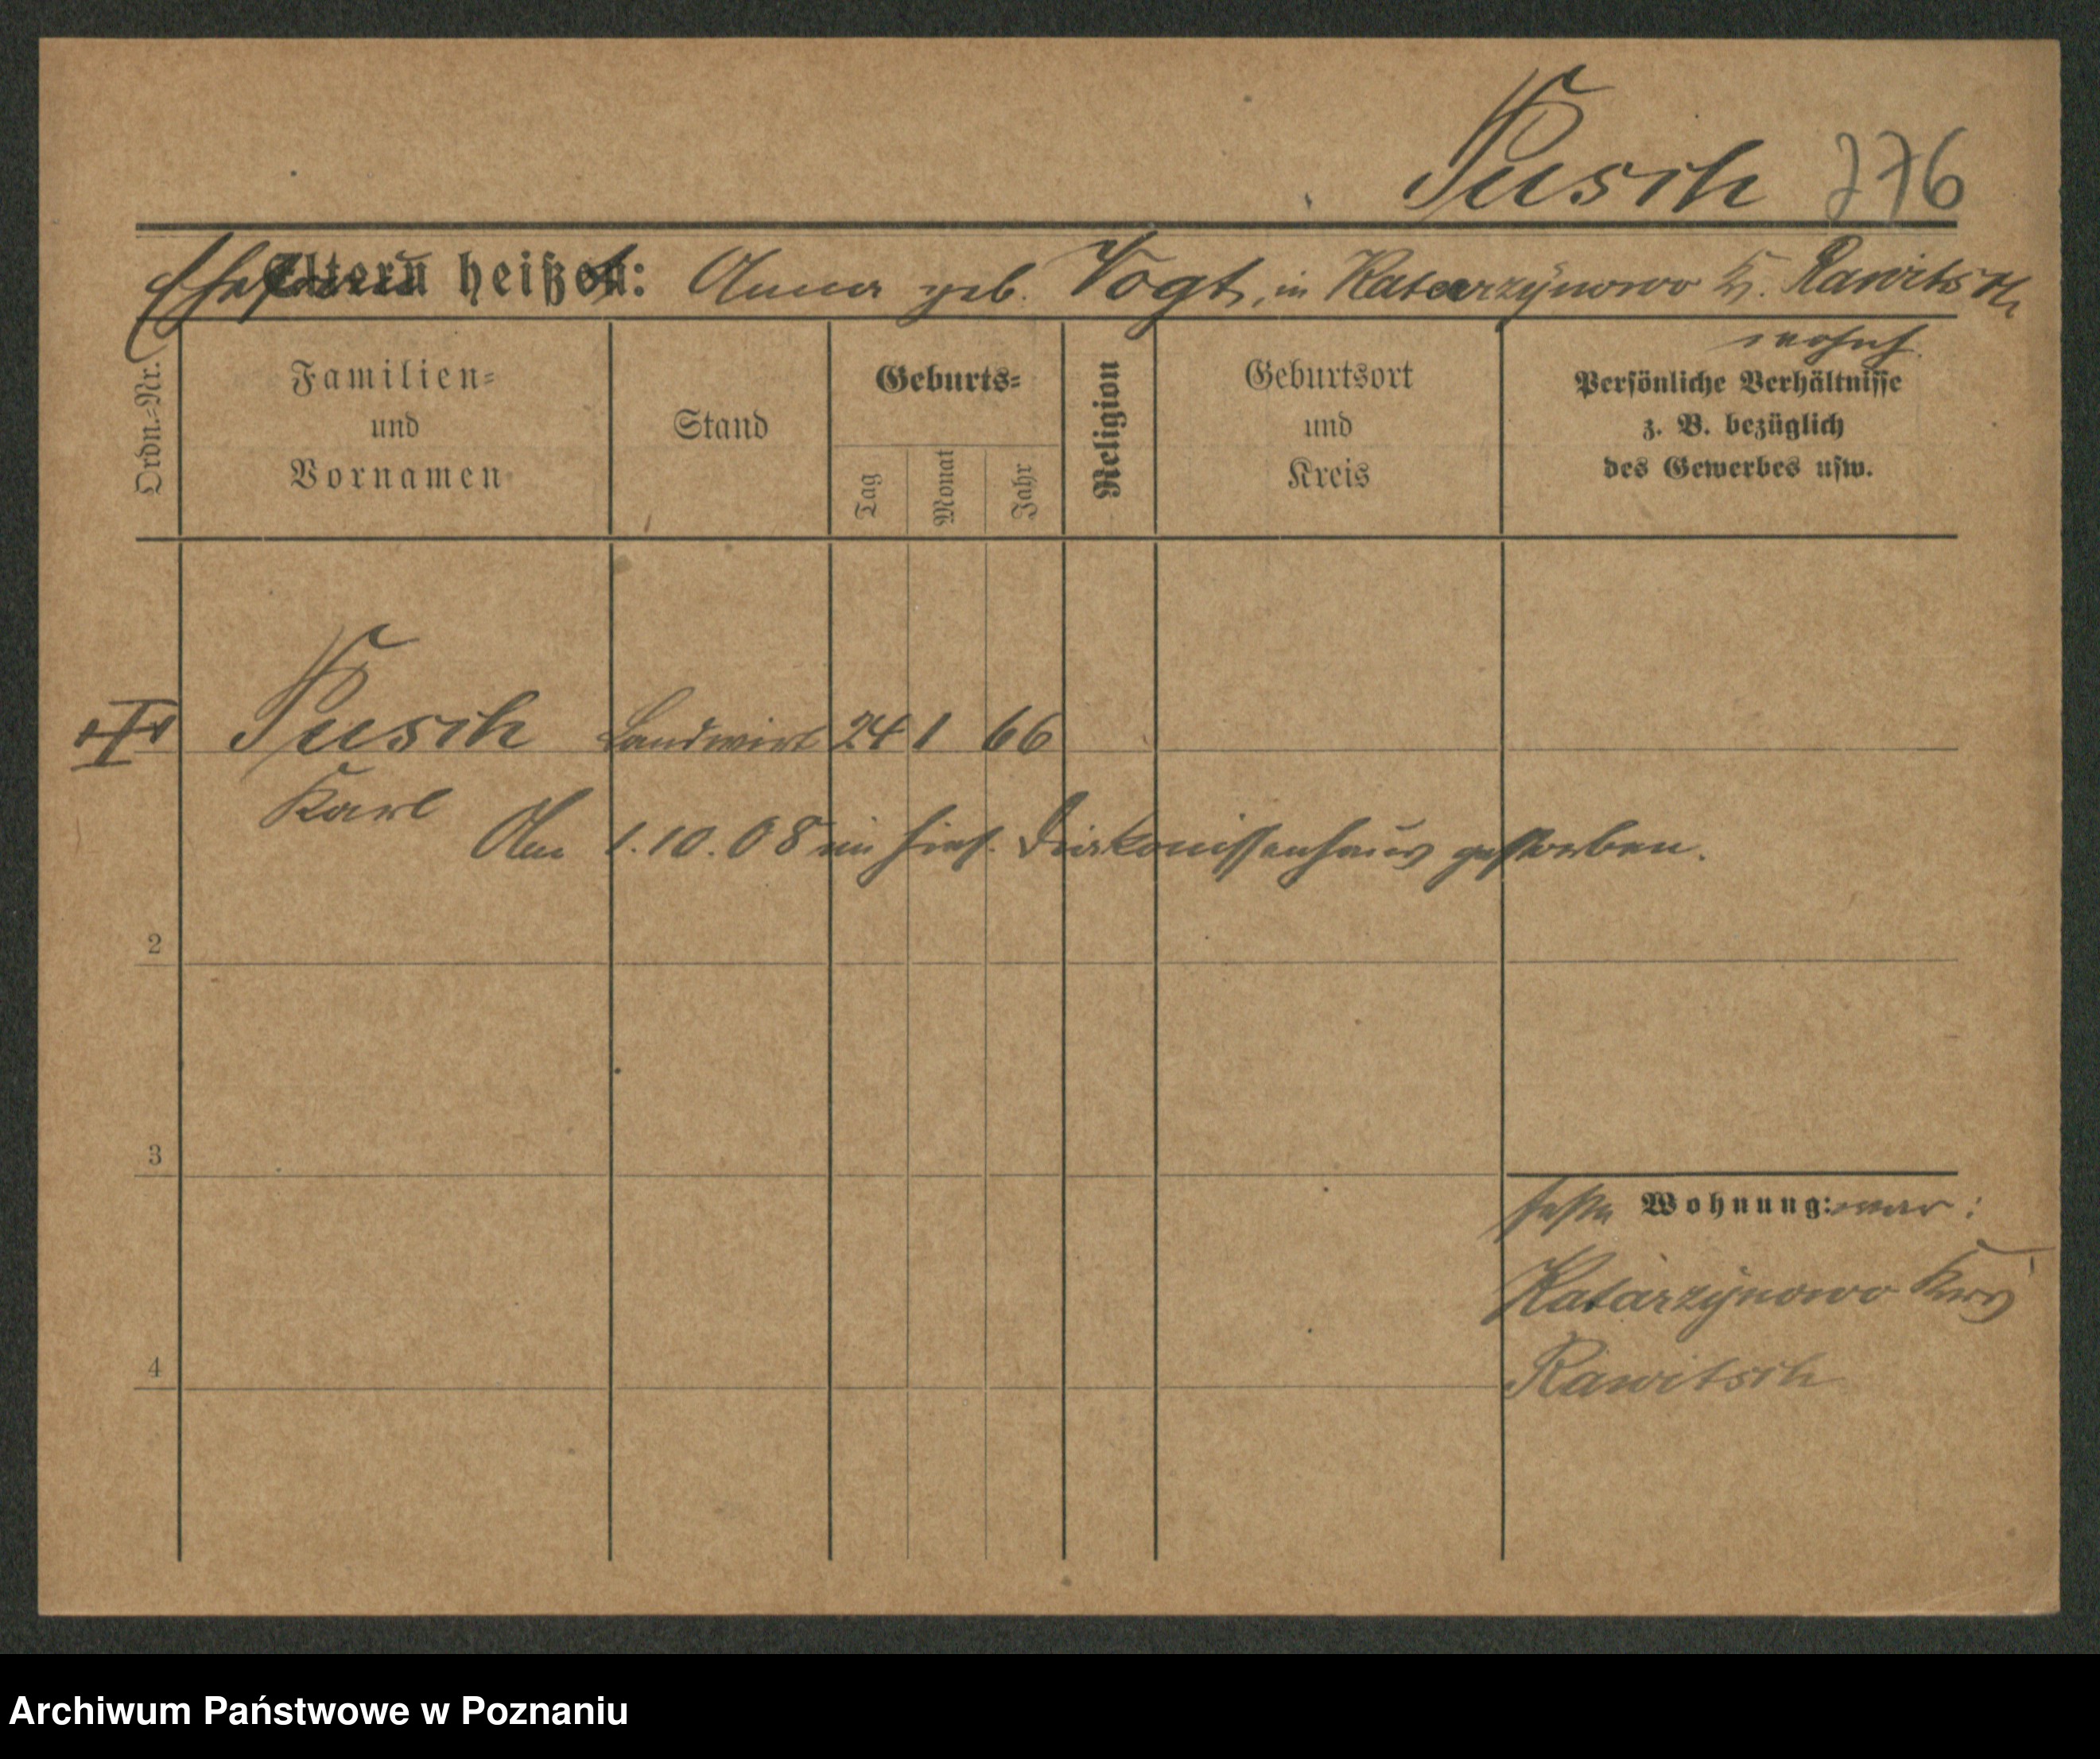 Pusch 276
Ehefrau heißt: Anna geb. Vogt, in Katarzynowo Kr. Rawitsch
wohnh.
Ordn.=Nr.
Familien=
und
Vornamen
Stand
Geburts=
Tag
Monat
Jahr
Religion
Geburtsort
und
Kreis
Persönliche Verhältnisse
z. B. bezüglich
des Gewerbes usw.
Pusch Landwirt 24 1 66
Karl
Am 1.10.08 im hies. Diakonissenhaus gestorben.
2
3
feste Wohnung: war:
Katarzynowo Krs
Rawitsch
4
Archiwum Państwowe w Poznaniu